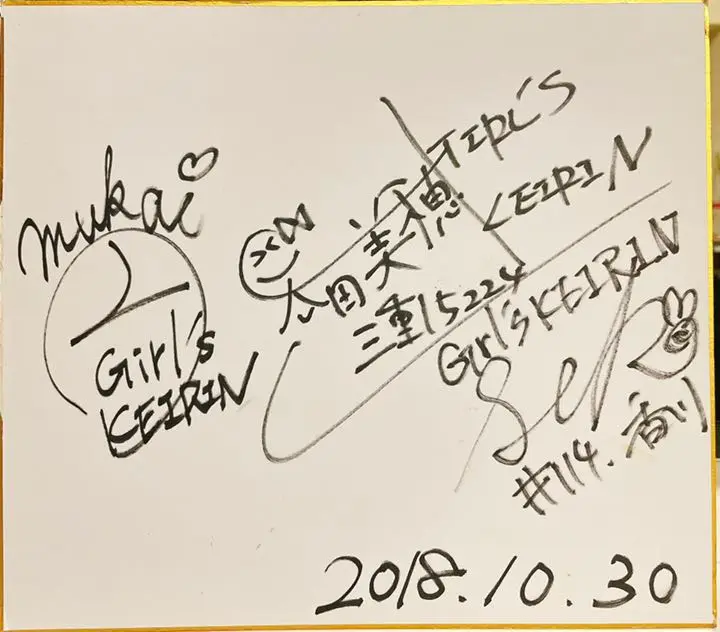 mukai
Girl's
KEIRIN
GIRL'S
KEIRIN
太田美穂
三重 15224
Girl's KEIRIN
#114. 香川
2018.10.30